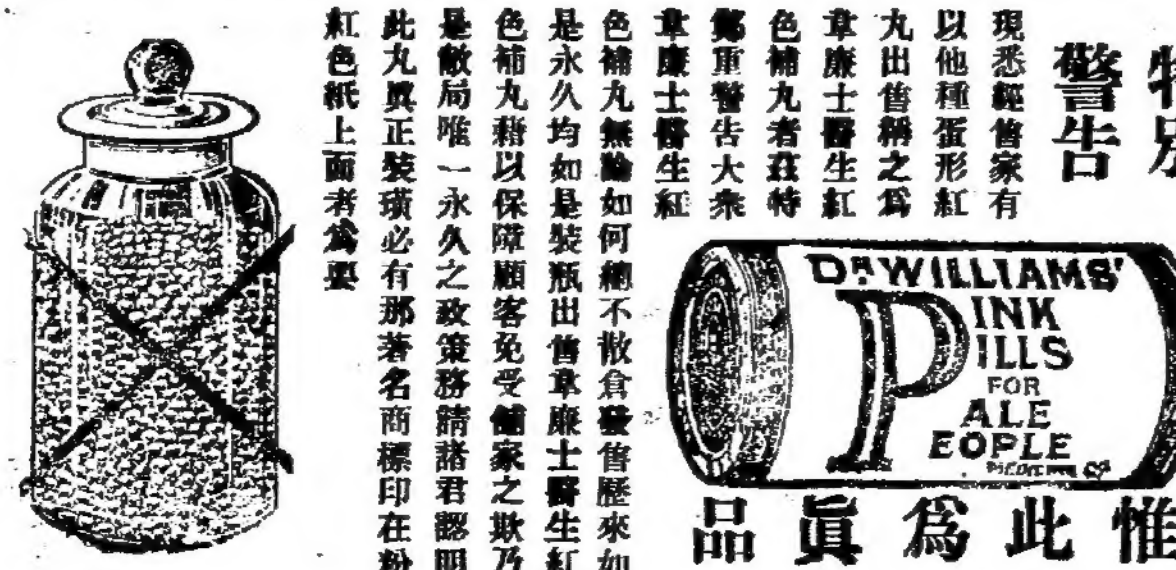 特別
警告
現悉經售家有
以他種蛋形紅
丸出售稱之爲
韋廉士醫生紅
色補丸者茲特
鄭重警告大衆
韋廉士醫生紅
色補丸無論如何總不散倉發售歷來如
是永久均如是裝瓶出售韋廉士醫生紅
色補丸藉以保障顧客免受舖家之欺乃
是敝局唯一永久之政策務請諸君認明
此丸眞正裝璜必有那著名商標印在粉
紅色紙上面者爲要
DR WILLIAMS'
PINK
PILLS
FOR
PALE
PEOPLE
MEDICINE Co
惟此爲眞品